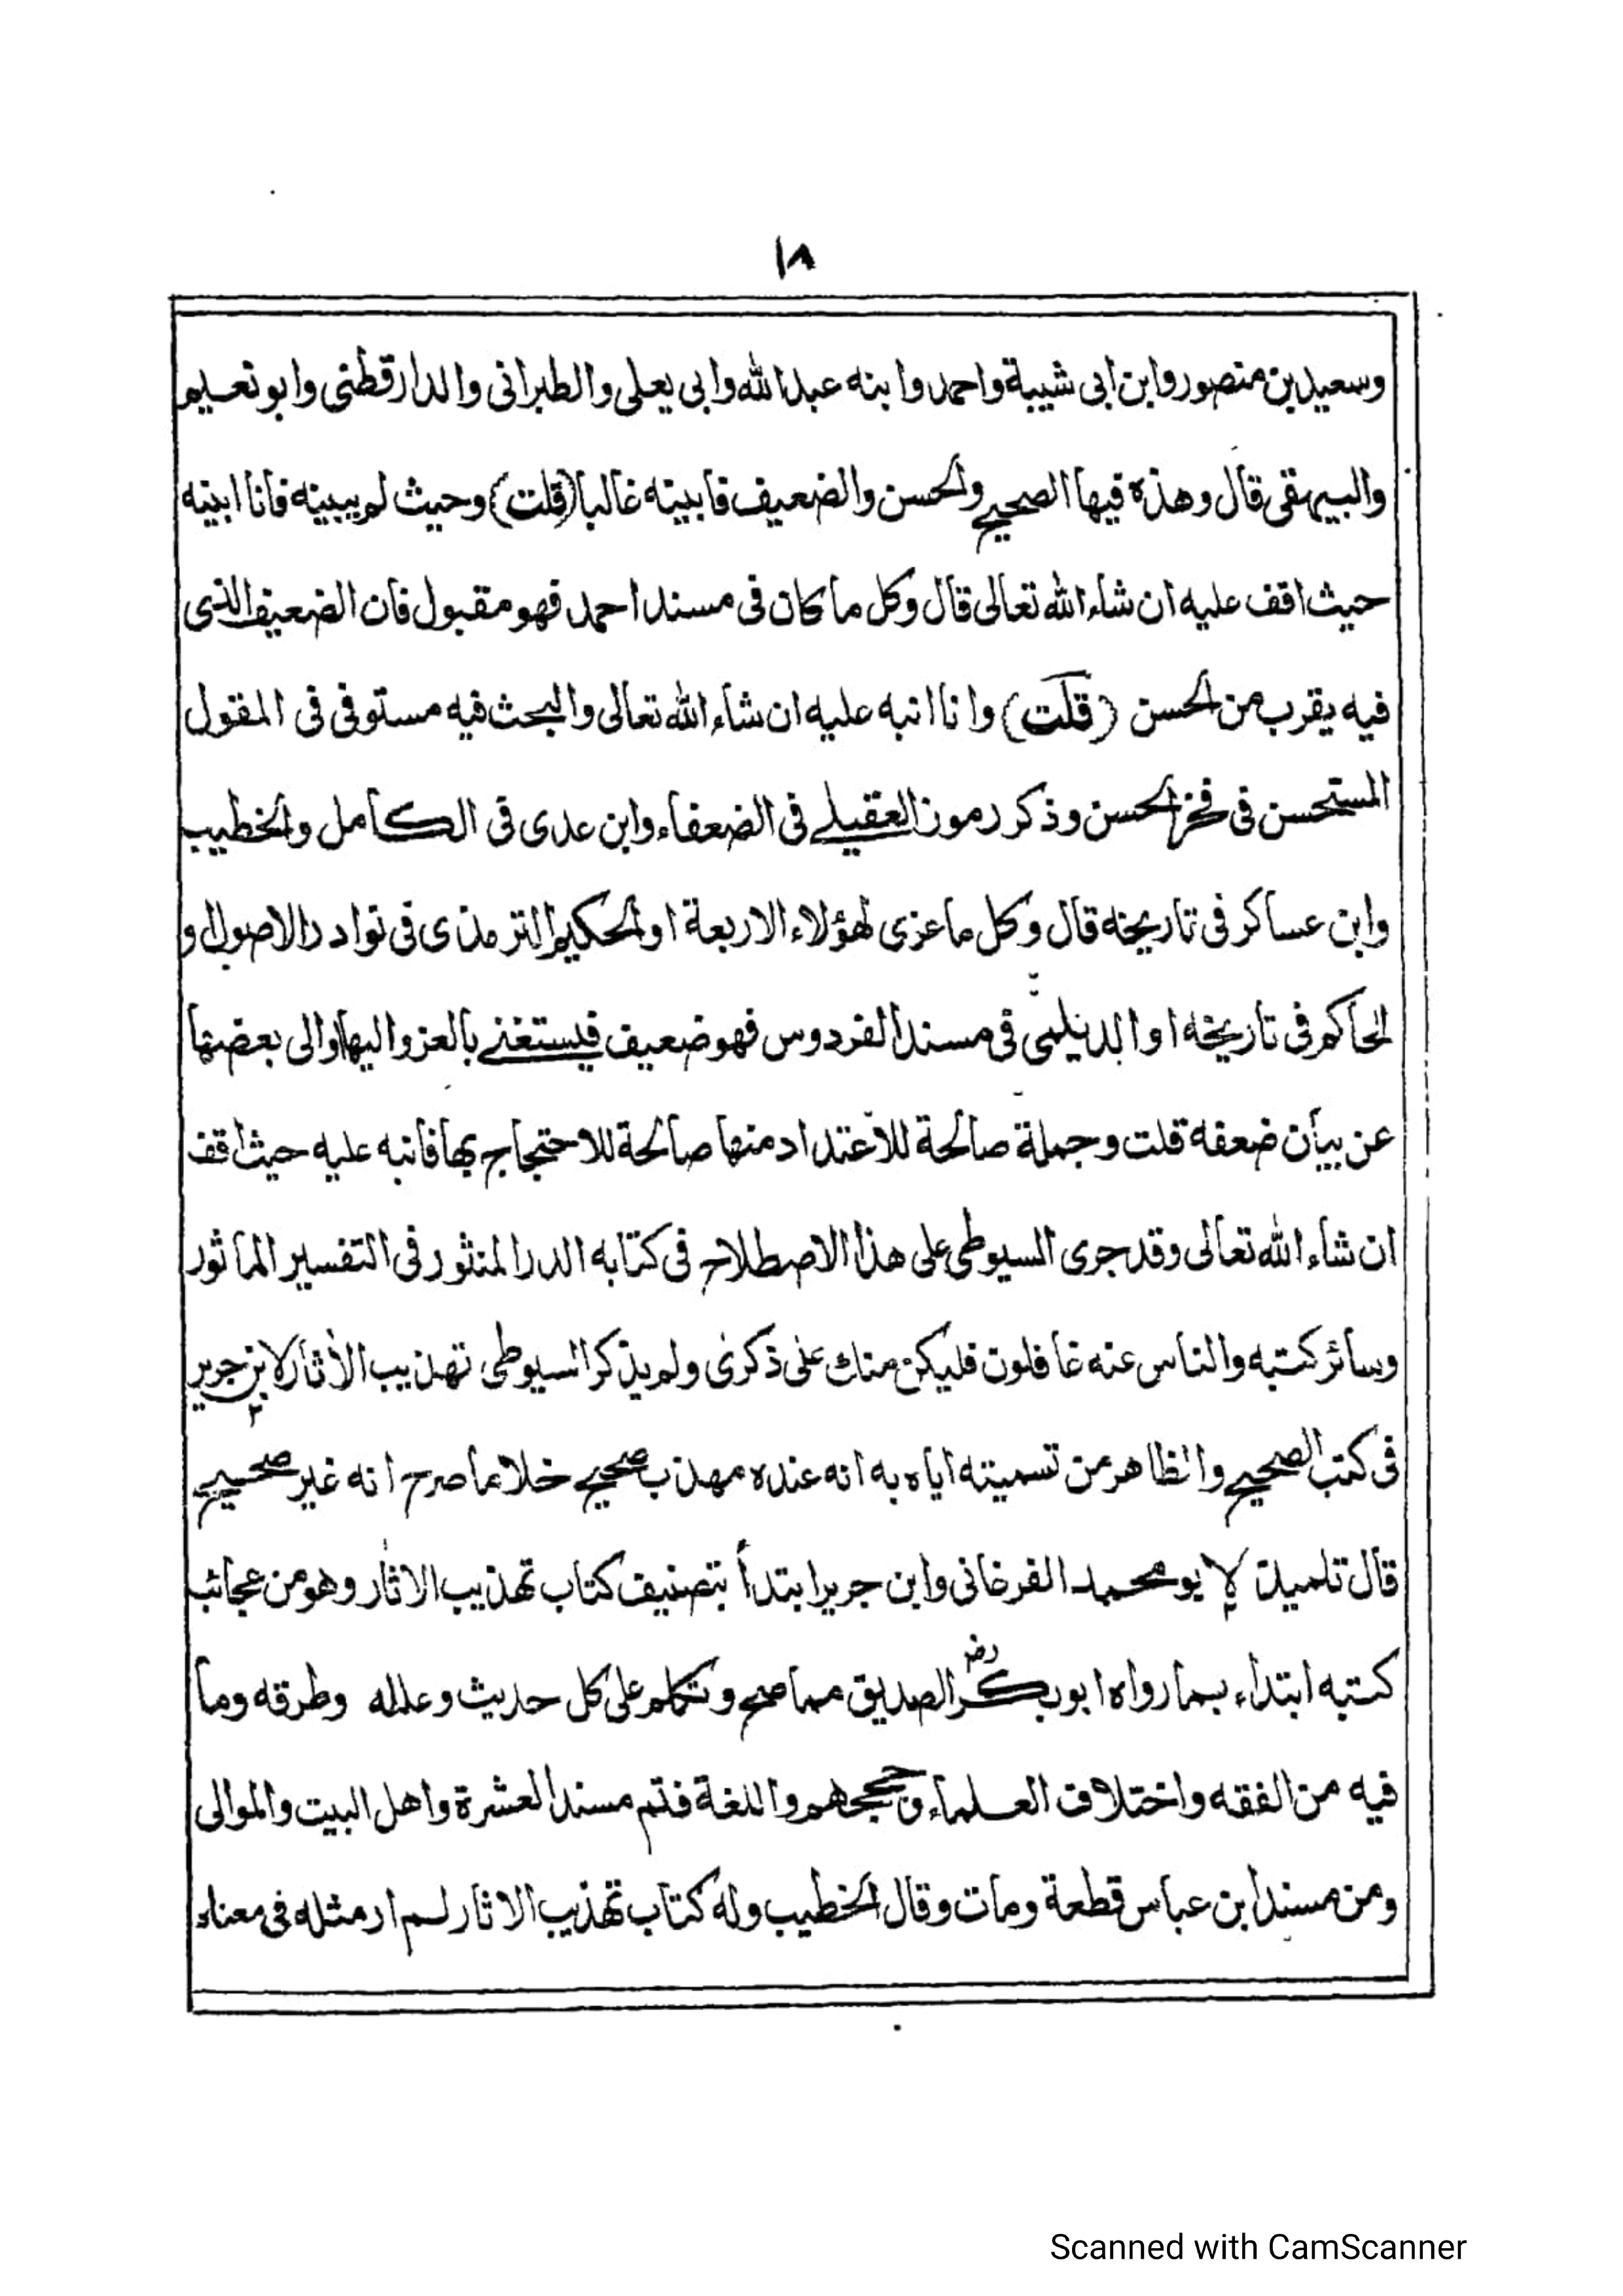 ١٨
وسعيد بن منصور وابن ابى شيبة واحمد وابنه عبدالله وابى يعلى والطبرانى والدارقطنى وابو نعيم
والبيهقى قال وهذه فيها الصحيح والحسن والضعيف فابينه غالبا (قلت) وحيث لم يبينه فانا ابينه
حيث اقف عليه ان شاء الله تعالى قال وكل ما كان فى مسند احمد فهو مقبول فان الضعيف الذى
فيه يقرب من الحسن (قلت) وانا انبه عليه ان شاء الله تعالى والبحث فيه مستوفى فى المقول
المستحسن فى فخر الحسن وذكر رموز العقيلے فى الضعفاء وابن عدى فى الكامل والخطيب
وابن عساكر فى تاريخه قال وكل ما عزى لهؤلاء الاربعة او الحكيم الترمذى فى نوادر الاصول و
الحاكم فى تاريخه او الديلمى فى مسند الفردوس فهو ضعيف فليستغنے بالعزو اليها او الى بعضها
عن بيان ضعفه قلت وجملة صالحة للاعتداد منها صالحة للاحتجاج بها فانبه عليه حيث اقف
ان شاء الله تعالى وقد جرى السيوطى على هذا الاصطلاح فى كتابه الدر المنثور فى التفسير الماثور
وسائر كتبه والناس عنه غافلون فليكن منك على ذكرى ولم يذكر السيوطى تهذيب الأثار لابن جرير
فى كتب الصحيح والظاهر من تسميته اياه به انه عنده مهذب صحيح خلا ما صرح انه غير صحيح
قال تلميذه ابو محمد الفرغانى وابن جرير ابتدأ بتصنيف كتاب تهذيب الاثار وهو من عجائب
كتبه ابتداء بما رواه ابوبكر رض الصديق مما صح وتكلم على كل حديث وعلله وطرقه وما
فيه من الفقه واختلاف العلماء وحججهم واللغة فتم مسند العشرة واهل البيت والموالى
ومن مسند ابن عباس قطعة ومات وقال الخطيب وله كتاب تهذيب الاثار لم ار مثله فى معناه
Scanned with CamScanner